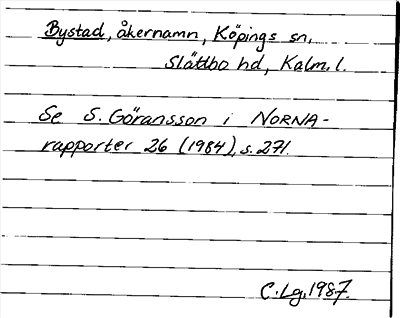 Bystad, åkernamn, Köpings sn,
Slättbo hd, Kalm. l.
Se S. Göransson i NORNA-
rapporter 26 (1984), s. 271.
C. Lg. 1987.